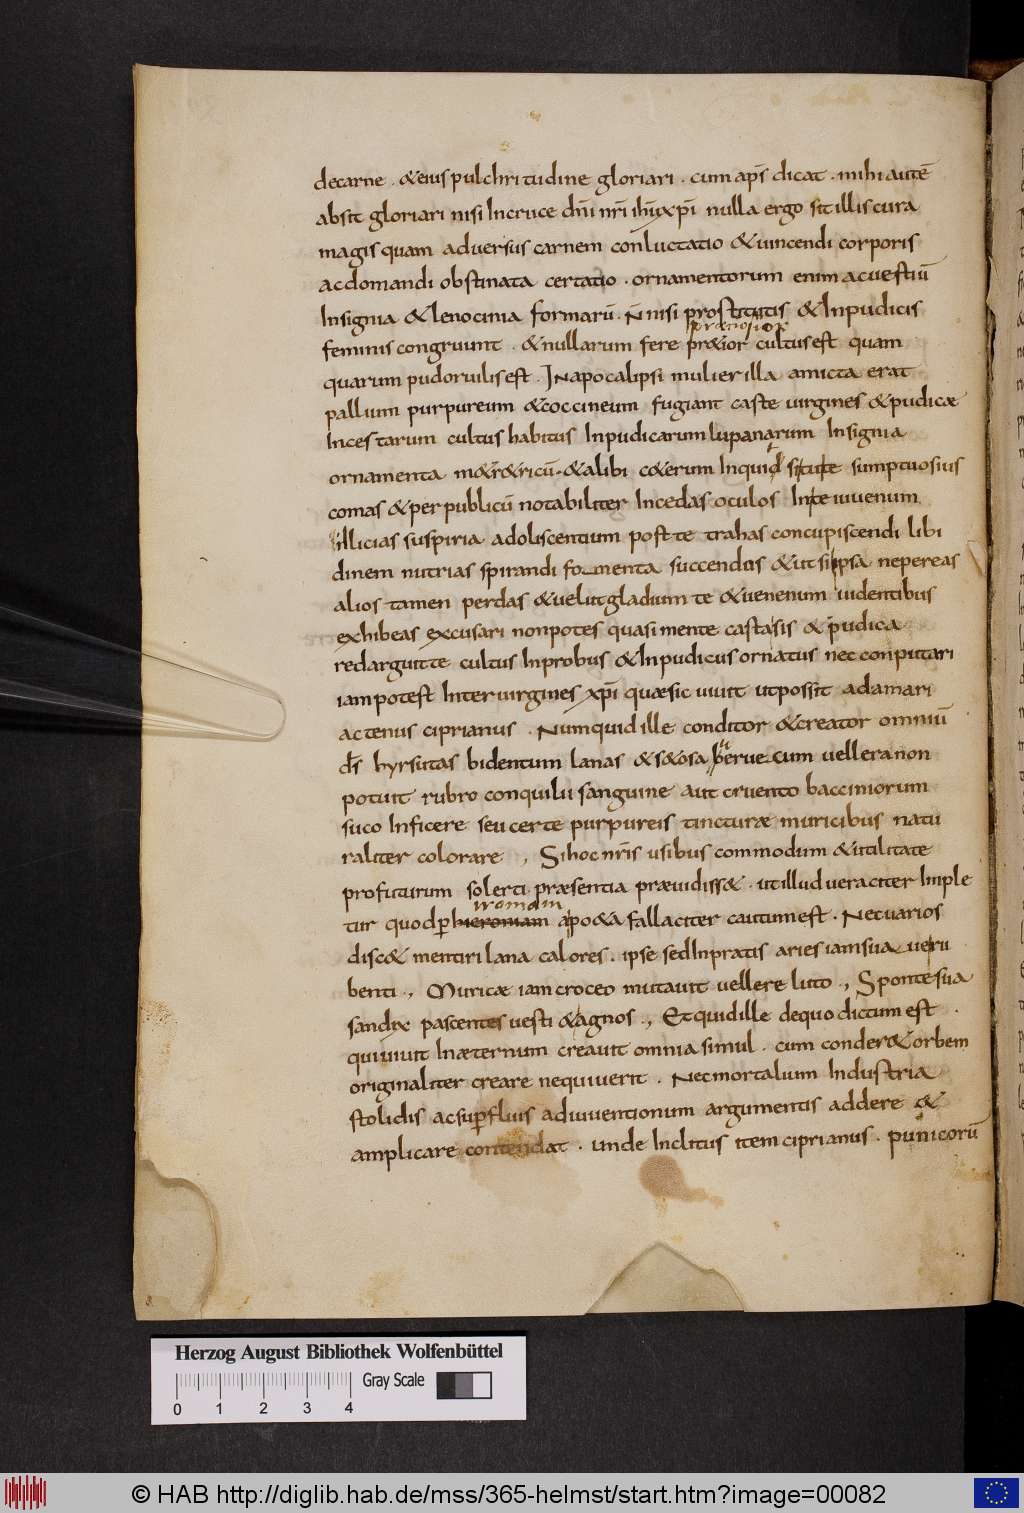 decarne . &eius pulchritudine gloriari . cum ap̄s dicat . mihi autē
absit gloriari nisi Incruce dn̄i nr̄i ihūxp̄i nulla ergo sit illis cura
magis quam adversus carnem conluctatio &vincendi corporis
acdomandi obstinata certatio . ornamentorum enim acvestiū
Insignia &lenocinia formarū . N̄ nisi prostitutis &Inpudicis
praetiosior
feminis congruunt . &nullarum fere pr&ior cultus est quam
quarum pudor vilis est . Inapocalipsi mulier illa amicta erat
pallium purpureum &coccineum fugiant caste virgines &pudicæ
Incestarum cultus habitus Inpudicarum lupanarum Insignia
ornamenta m&r&ricū . &alibi c&erum Inquid si tute sumptuosius
comas &per publicū notabiliter Incedas oculos Inte iuvenum
illicias suspiria adoliscentium post te trahas concupiscendi libi
dinem nutrias spirandi fomenta succendas &ut si ipsa ne pereas
alios tamen perdas &velut gladium te &venenum videntibus
exhibeas excusari non potes quasi mente casta sis & pudica
redarguit te cultus Inprobus &Inpudicus ornatus nec conputari
iam potest Inter virgines xp̄i quæ sic vivit ut possit adamari
actenus ciprianus . Numquid ille conditor &creator omniū
d̄s hyrsutas bidentum lanas &s&osa berve cum vellera non
potuit rubro conquilii sanguine aut cruento bacciniorum
suco Inficere seu certe purpureis tincturæ muricibus natu
raliter colorare , Si hoc nr̄is usibus commodum &utilitate
profuturum solerti præsentia prævidiss& . ut illud veraciter Imple
iromam
tur quod p hieroniam apo&a fallaciter cautum est . Nec varios
disc& mentiri lana calores . ipse sed Inpratis aries iam sua veru
benti ., Muricæ iam croceo mutavit vellere luto ., Sponte sua
sandix pascentes vesti &agnos ., Et quid ille de quo dictum est .
qui vivit Inæternum creavit omnia simul . cum conder& orbem
originaliter creare nequiverit . Nec mortalium Industria
stolidis ac sup̄fluis adinventionum argumentis addere &
amplicare contendat . unde Inclitus item ciprianus . punicorū
Herzog August Bibliothek Wolfenbüttel
0 1 2 3 4 Gray Scale
© HAB http://diglib.hab.de/mss/365-helmst/start.htm?image=00082